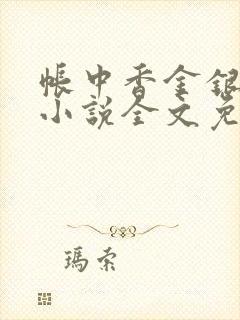 帳中香金銀
小說全文免
瑪索